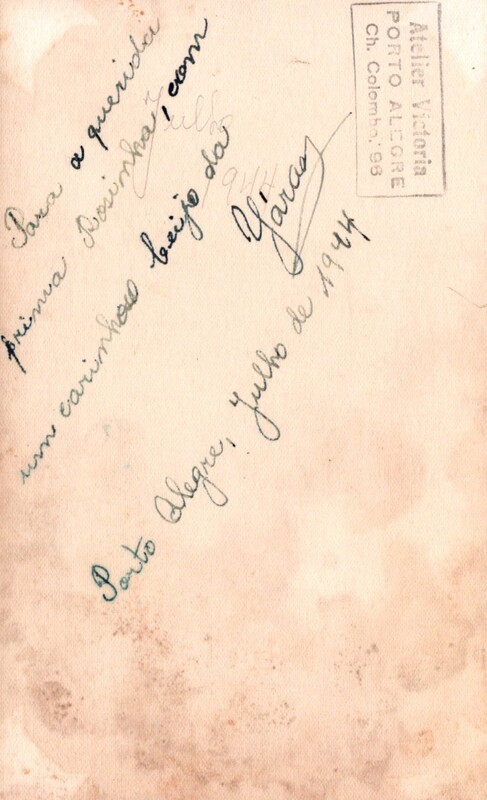 Para a querida
prima Rosinha, com
um carinhoso beijo da
Yára
Porto Alegre, Julho de 1944
Julho
944
Atelier Victoria
PORTO ALEGRE
Ch. Colombo, 96